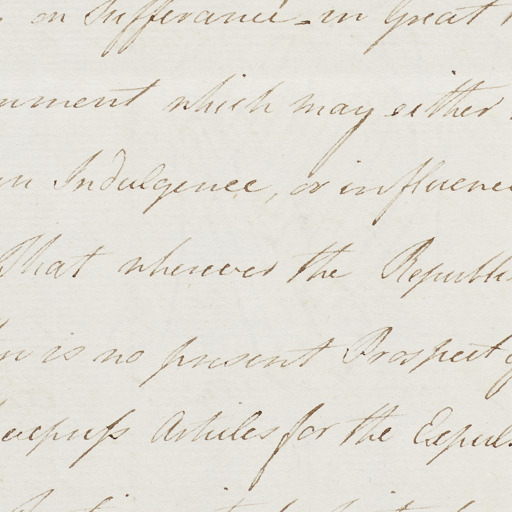 on Sufferance - in Great
nment which may either
an Indulgence, or influence
That wherever the Republi
is no present Prospect
Articles for the Expuls